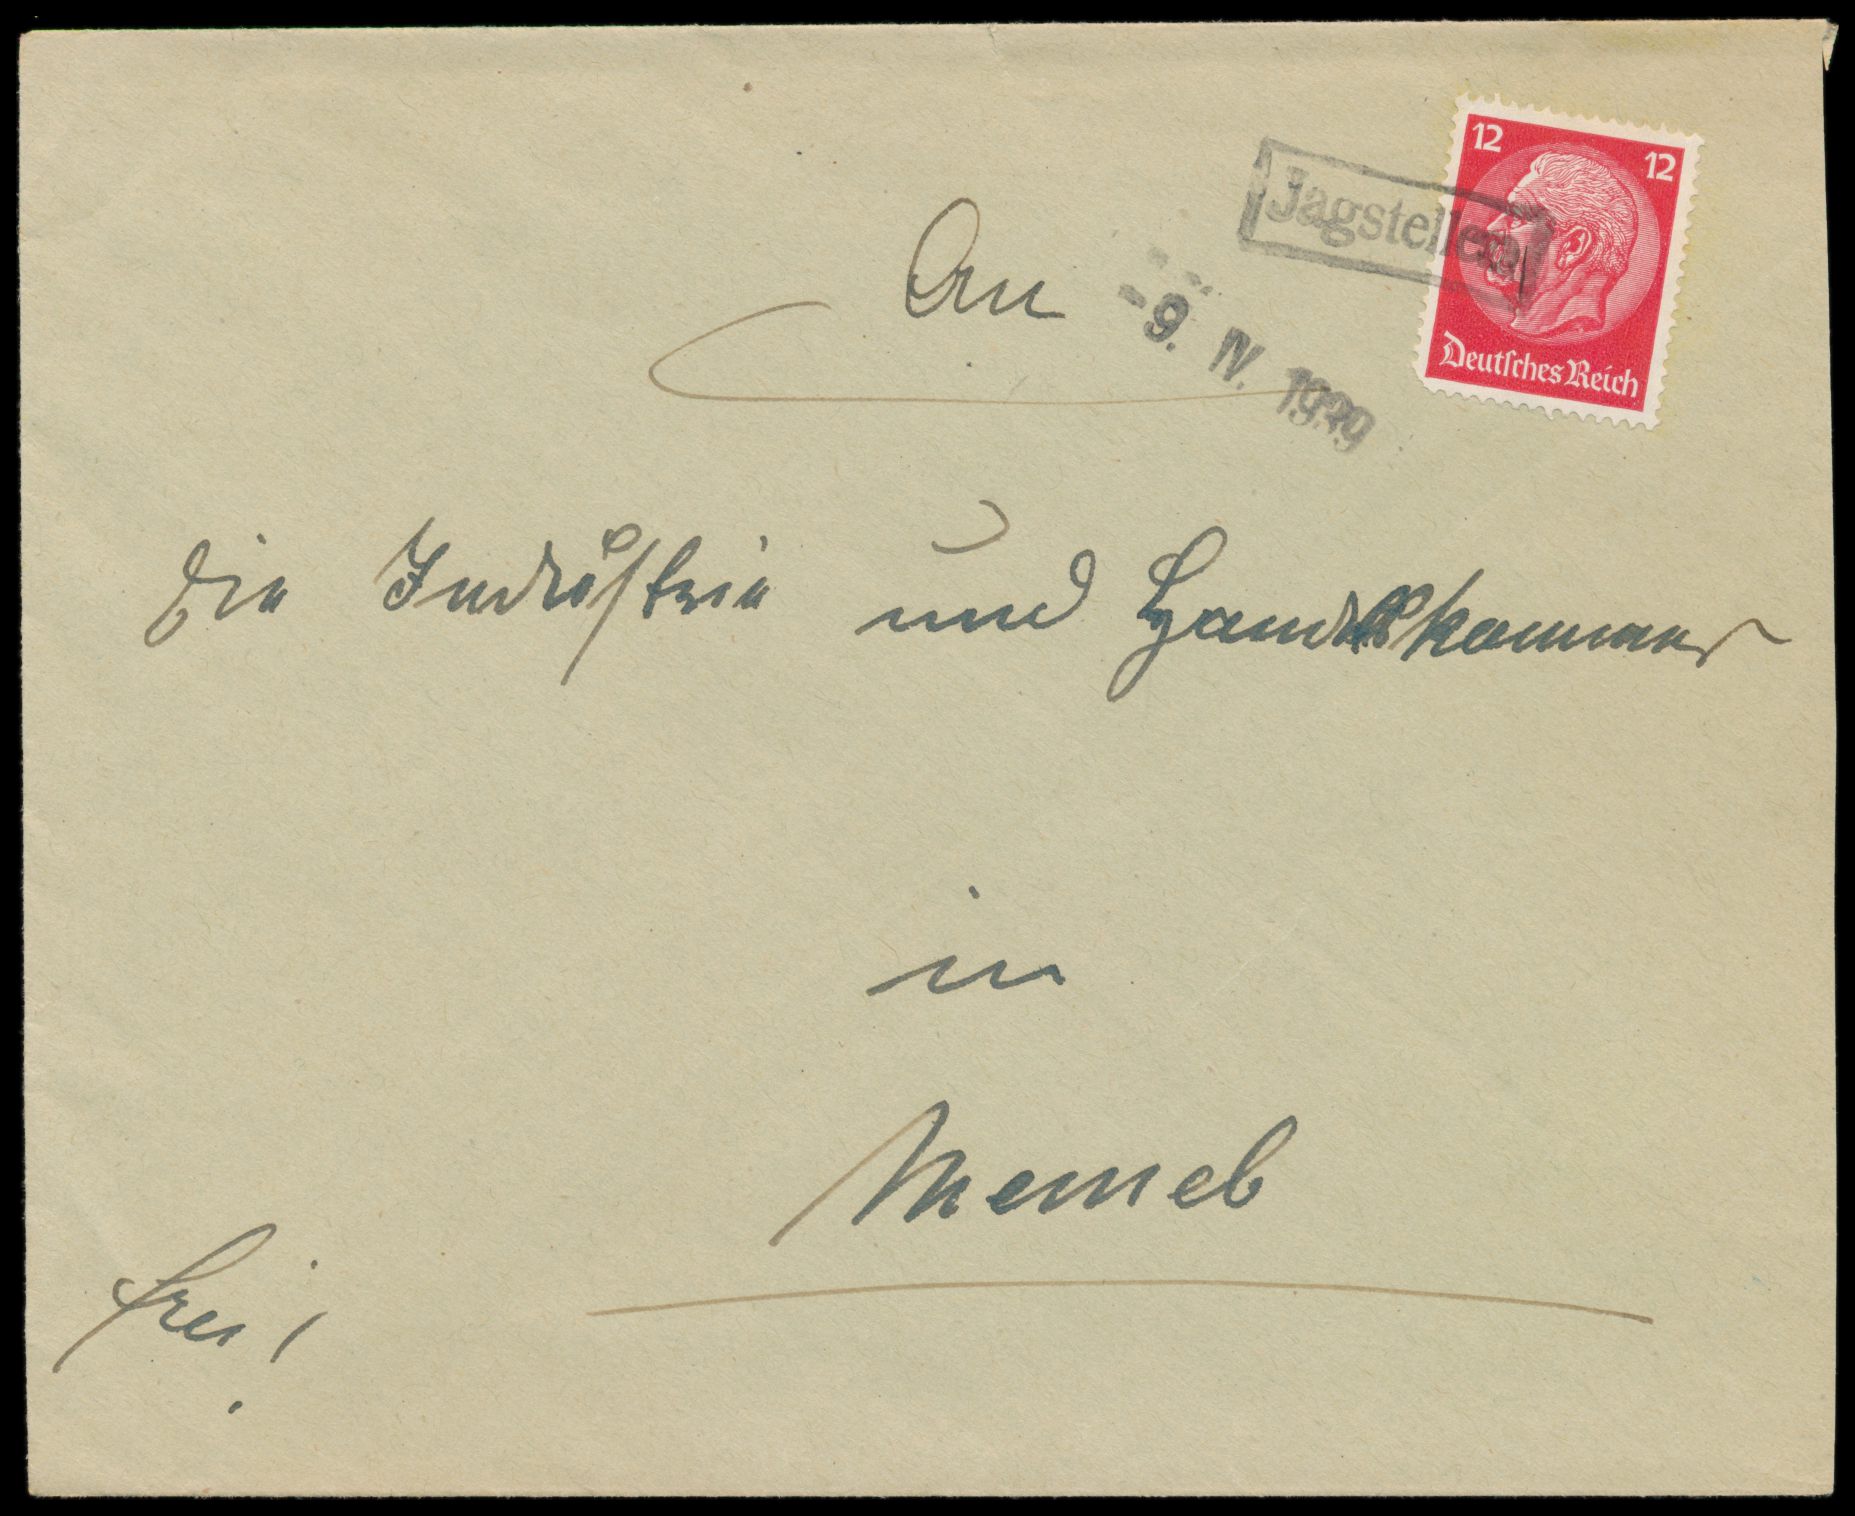 12 12
Jagstellen
Deutsches Reich
-9. IV. 1939
An
die Industrie und Handelskammer
in
Memel
frei!